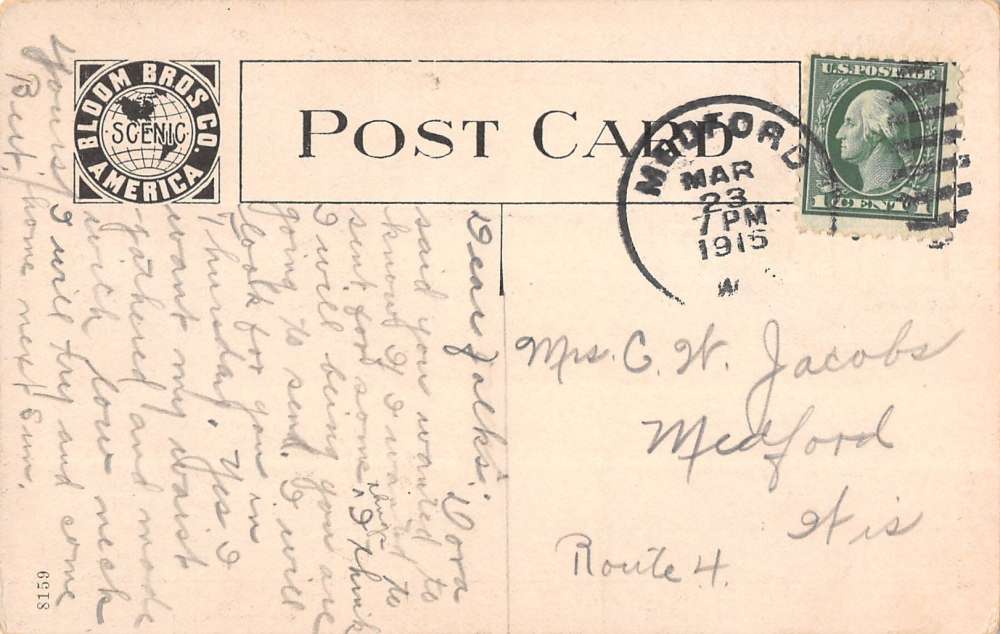 BLOOM BROS CO
SCENIC
AMERICA
POST CARD
MEDFORD
MAR
23
7 PM
1915
W
U.S.POSTAGE
1 CENT 1
Dear Folks: Dora
said you wanted to
know if I want to
sent for some things I think
I will bring you are
going to send. I will
look for you in
Thursday. Yes I
want my waist
gathered and made
with low neck
I will try and come
home next Sun.
Yours,
Burt.
Mrs. C. W. Jacobs
Medford
Wis
Route 4.
8159